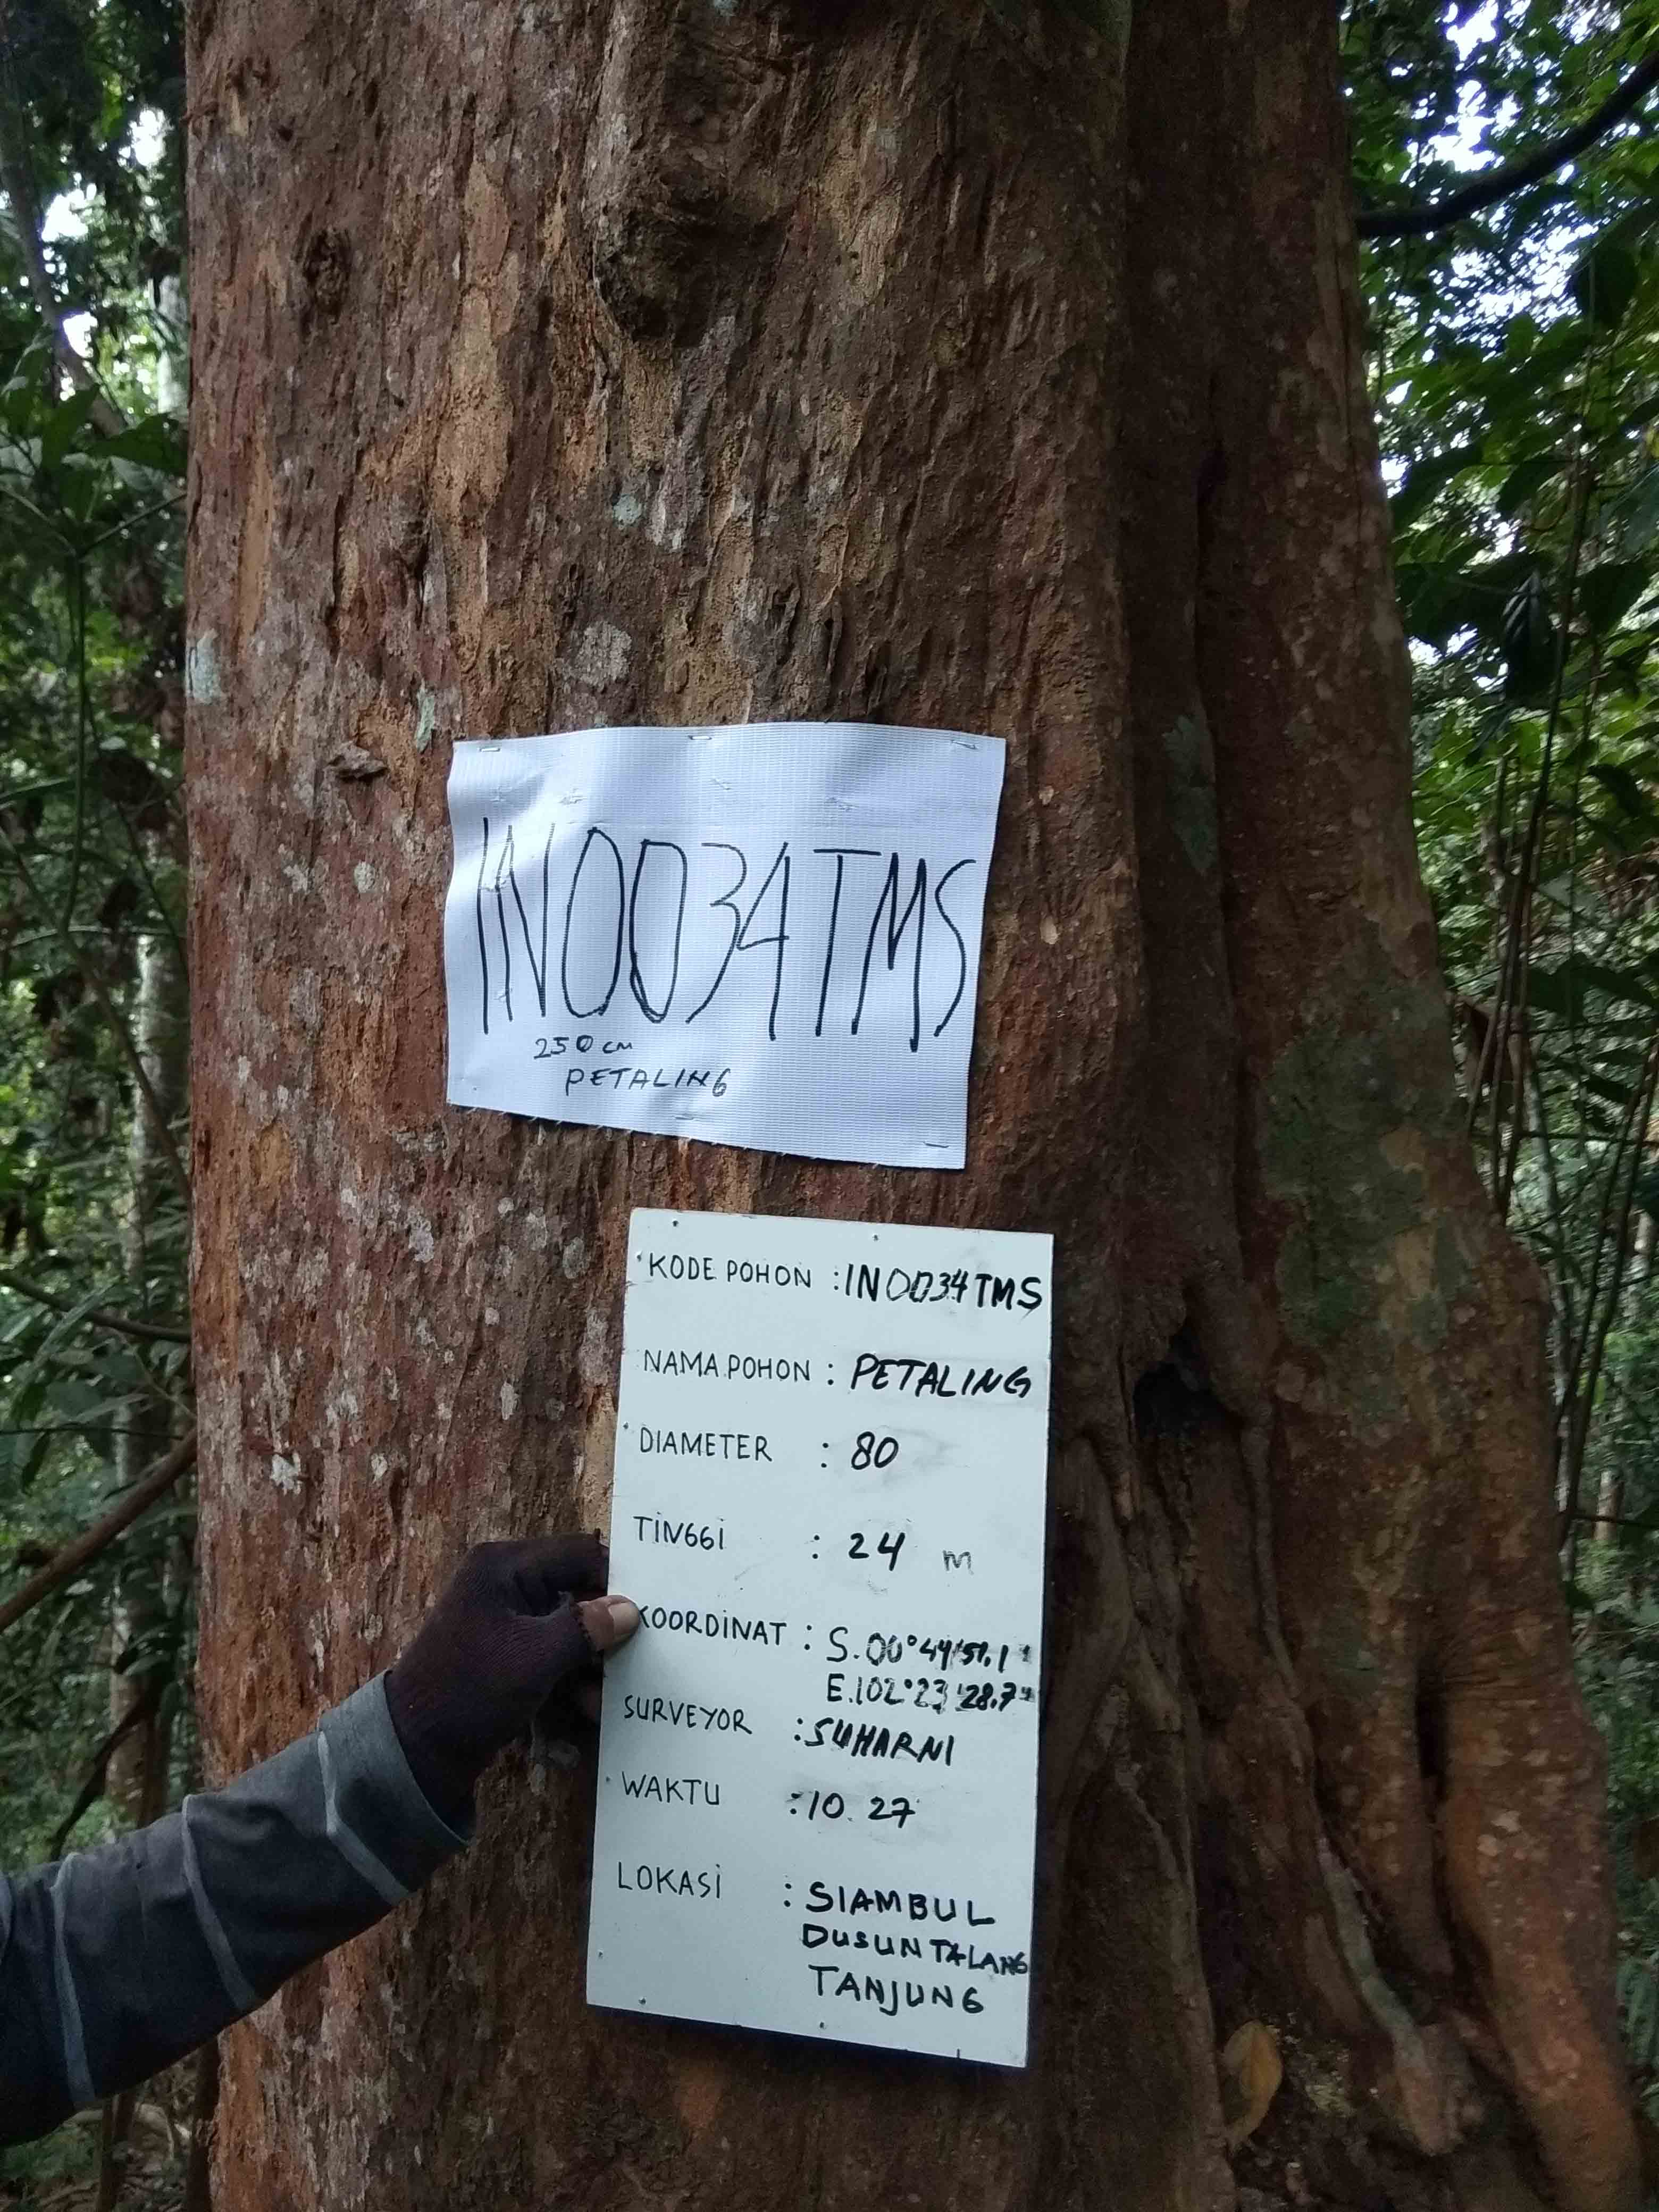 IN0034TMS
250 cm
PETALING
KODE POHON : IN0034TMS
NAMA POHON : PETALING
DIAMETER : 80
TINGGI : 24 m
KOORDINAT : S.00°44'51.1"
E.102°23'28.7"
SURVEYOR : SUHARNI
WAKTU : 10.27
LOKASI : SIAMBUL
DUSUN TALANG
TANJUNG